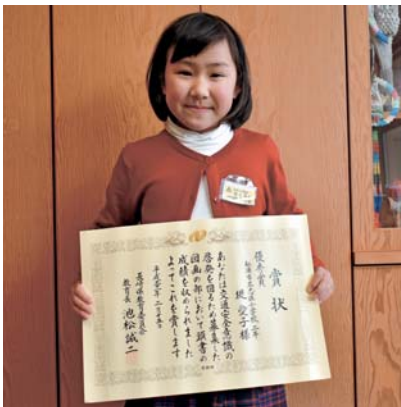 賞状
優秀賞
愛子様
あなたは交通安全意識の
啓発を図るため募集した
図画の部において頭書の
成績を収められました
よってこれを賞します
長崎県教育委員会
教育長 池松誠二